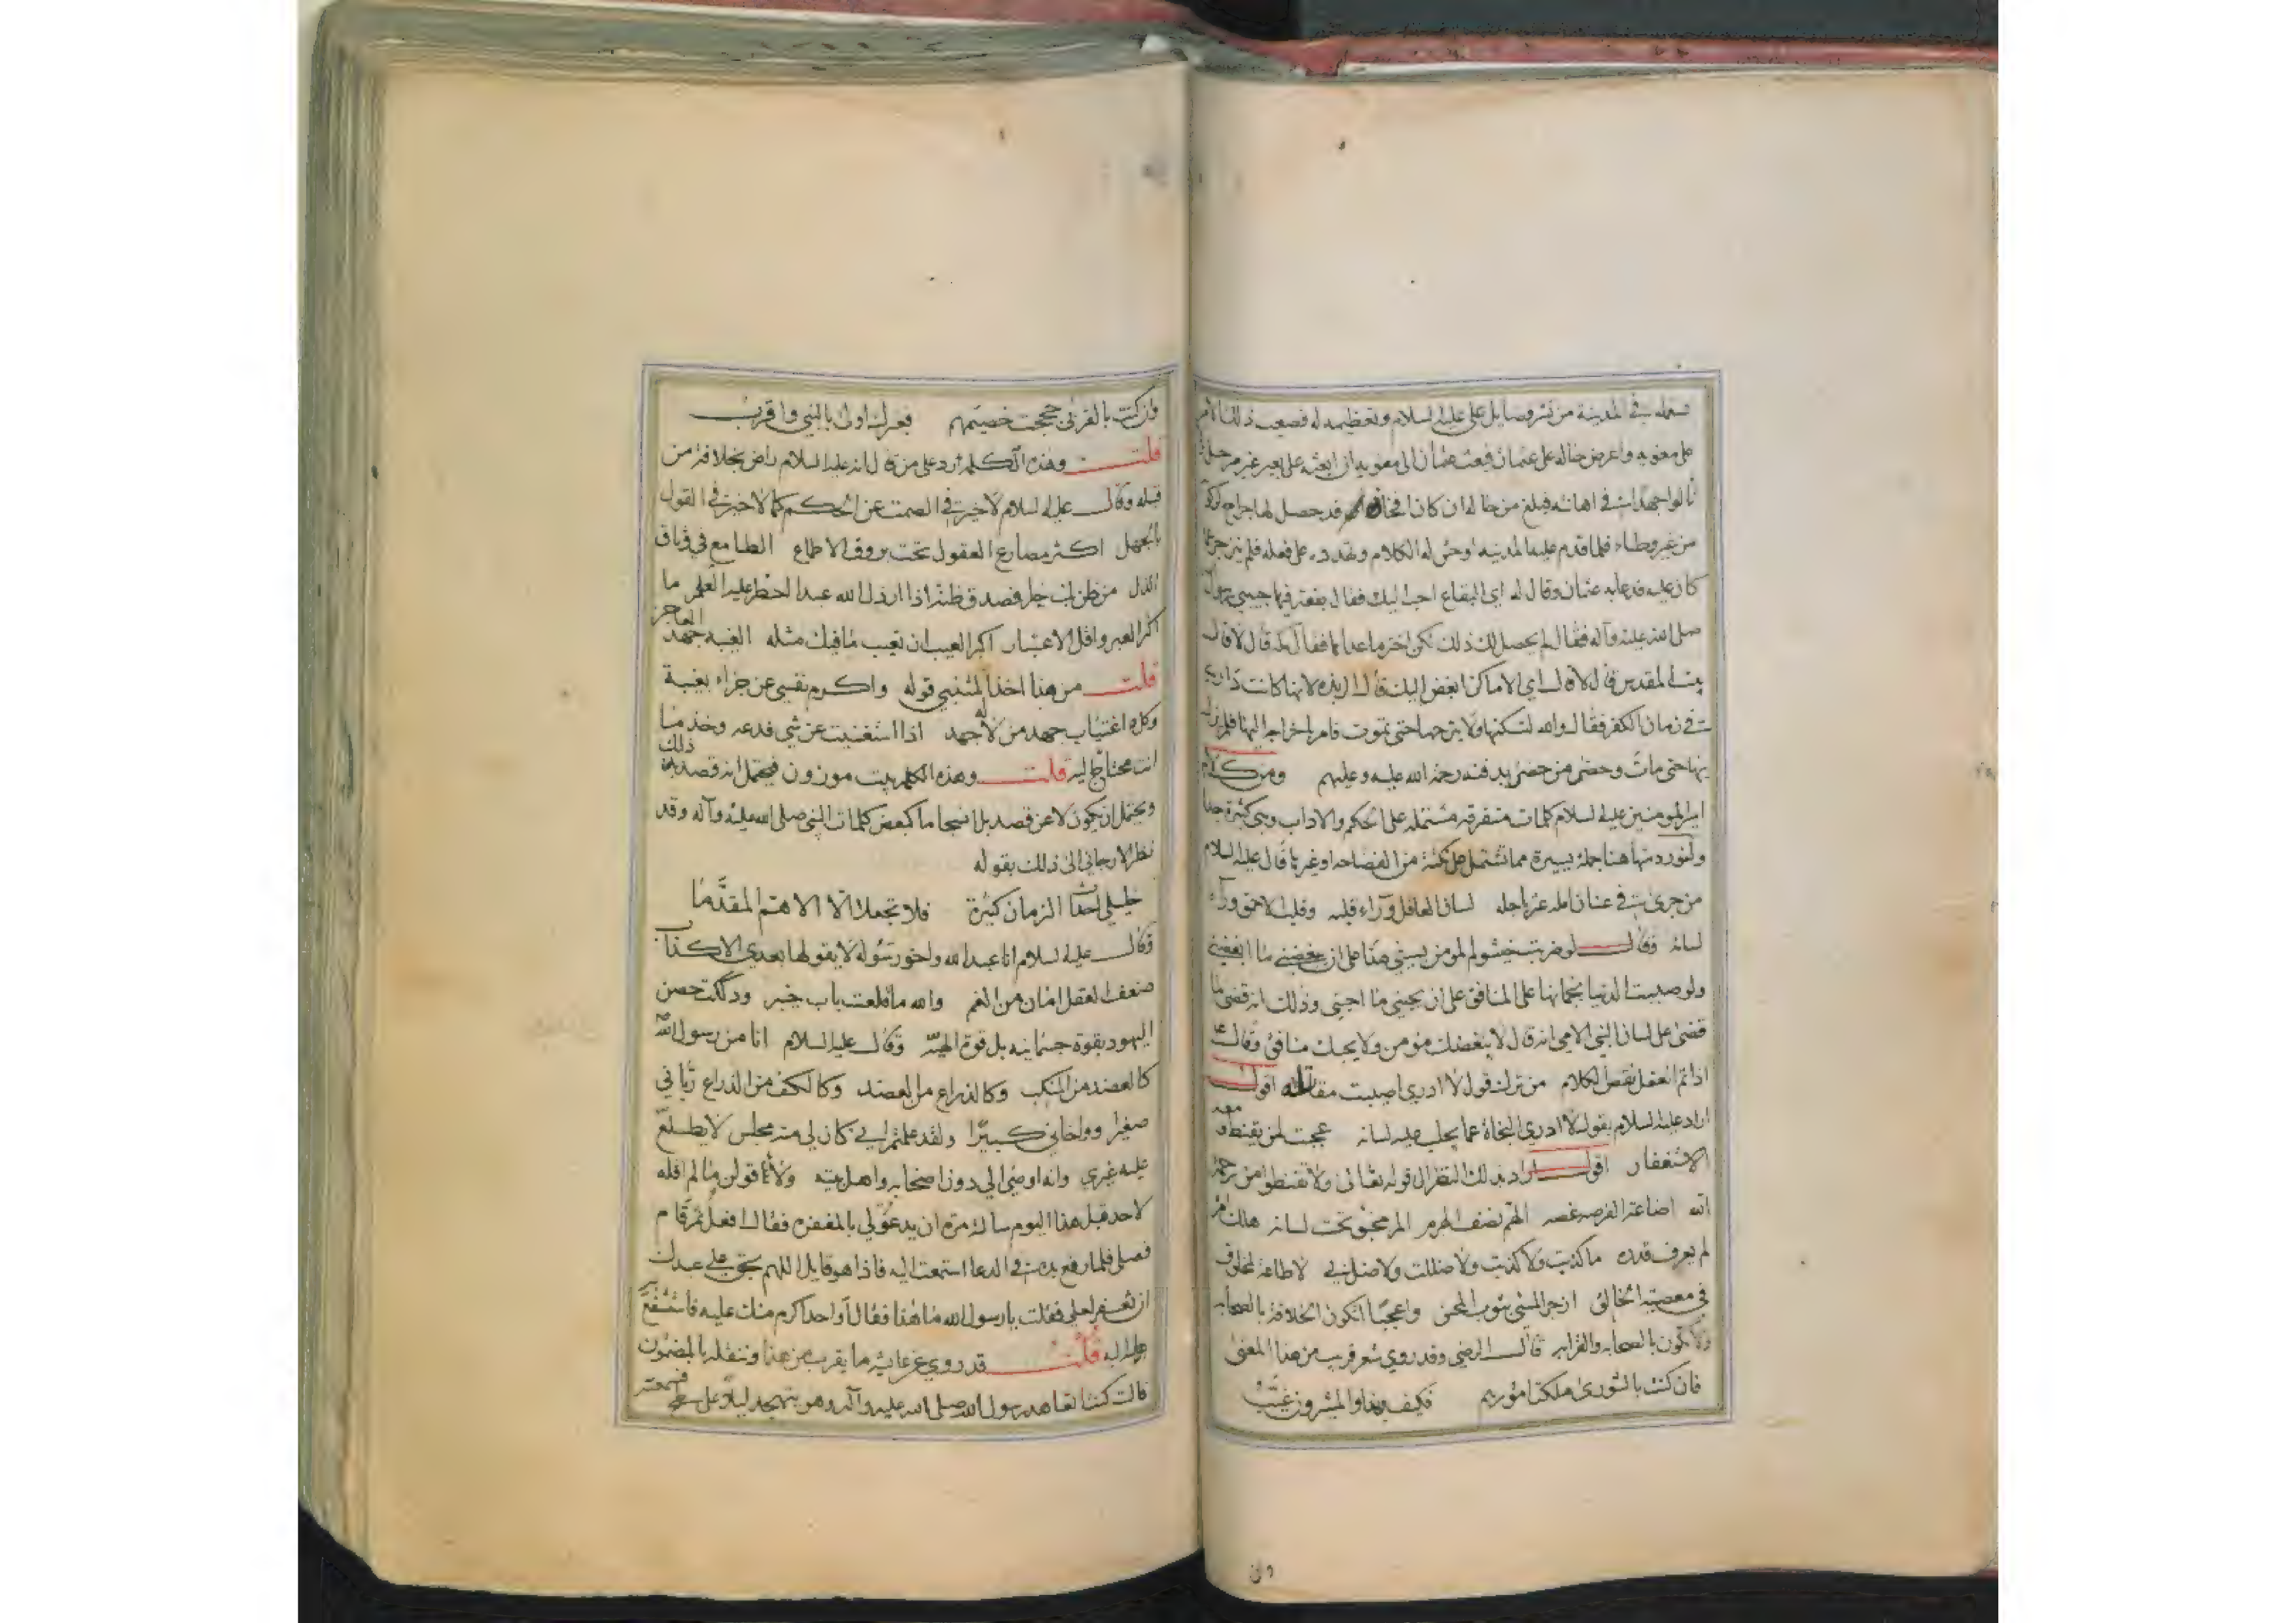 يفعله في المدينة من نشر فضايل علي عليه السلام وتعظيمه له فصعب ذلك الامر
على معويه واعرض حاله على عثمان فبعث عثمان الى معويه ان ابعثه على بعير غير مرحل
نالوا جهدا في اهانته فبلغ من حاله ان كان افخاذه قد حصل لها جراح
من غير وطاء فلما قدم عليه المدينه اوحش له الكلام وتهدده على فعله فلم ينزجر عما
كان عليه قد عابه عثمان وقال له اي البقاع احب اليك فقال بقعة فيها حبيبي رسول
صلى الله عليه وآله فقال لم يحصل لك ذلك لكن اختر ما عداها فقال مكه قال لا قال
بيت المقدس قال لا قال اي الاماكن ابغض اليك قال الربذه لانها كانت داري
في زمان الكفر فقال والله لتسكنها ولا تبرحها حتى تموت فامر باخراجه اليها فلم يزل
بها حتى مات وحضر من حضر بدفنه رحمة الله عليه وعليهم ومن كلام
امير المومنين عليه السلام كلمات متفرقه مشتمله على الحكم والاداب وهي كثيرة جدا
ولنورد منها هنا جملة يسيرة مما تشتمل على نكتة من الفصاحه او غيرها قال عليه السلام
من جرى في عنان امله عثر باجله لسان العاقل وراء قلبه وقلب الاحمق وراء
لسانه وقال لو ضربت خيشوم المومن بسيفي هذا على ان يبغضني ما ابغضني
ولو صببت الدنيا بجماتها على المنافق على ان يحبني ما احبني وذلك انه قضي ما
قضى على لسان النبي الامي انه قال لا يبغضك مؤمن ولا يحبك منافق وقال ع
اذا تم العقل نقص الكلام من ترك قول لا ادري اصيبت مقاتله اقول
اراد عليه السلام بقول لا ادري النجاة عما يجلب عليه لسانه عجبت لمن يقنط ومعه
الاستغفار اقول اراد بذلك النظر الى قوله تعالى ولا تقنطوا من رحمة
الله اضاعة الفرصه غصه الهم نصف الهرم المر مخبو تحت لسانه هلك امرؤ
لم يعرف قدره ما كذبت ولا كذبت ولا ضللت ولا ضل بي لا طاعة لمخلوق
في معصية الخالق ازجر المسئ بثوب المحسن واعجبا اتكون الخلافة بالصحابه
ولا تكون بالصحابه والقرابه قال الرضي وقد روي شعر قريب من هذا المعنى
فان كنت بالشورى ملكت امورهم فكيف بهذا والمشيرون غيب
وان
وان كنت بالقربى حججت خصيمهم فغيرك اولى بالنبي واقرب
قلت وهذه الكلمه ترد على من قال انه عليه السلام راض بخلافة من
قبله وقال عليه السلام لا خير في الصمت عن الحكم كما لا خير في القول
بالجهل اكثر مصارع العقول تحت بروق الاطماع الطامع في وثاق
الذل من ظن بك خيرا فصدق ظنه اذا ارذل الله عبدا احظر عليه العلم ما
اكثر العبر واقل الاعتبار اكبر العيب ان تعيب ما فيك مثله الغيبه جهد العاجز
قلت من هنا اخذ المتنبي قوله واكرم نفسي عن جزاء بغيبة
وكل اغتياب جهد من لا له جهد اذا استغنيت عن شي فدعه وخذ ما
انت محتاج اليه قلت وهذه الكلمه بيت موزون فيحتمل انه قصد به ذلك
ويحتمل ان يكون لا عن قصد بل انسجاما كبعض كلمات النبي صلى الله عليه وآله وقد
نظر الارجاني الى ذلك بقوله
خليلي احداث الزمان كثيرة فلا تجعلا الا الاهم المقدما
وقال عليه السلام انا عبد الله واخو رسوله لا يقولها بعدي الا كذاب
ضعف العقل امان من الغم والله ما قلعت باب خيبر ودكدكت حصن
اليهود بقوة جسمانيه بل قوة الهيه وقال عليه السلام انا من رسول الله
كالعضد من المنكب وكالذراع من العضد وكالكف من الذراع رباني
صغيرا وواخاني كبيرا ولقد علمتم اني كان لي منه مجلس لا يطلع
عليه غيري وانه اوصى الي دون اصحابه واهل بيته ولاقولن ما لم اقله
لاحد قبل هذا اليوم سالته مرة ان يدعو لي بالمغفره فقال افعل ثم قام
فصلى فلما رفع يده في الدعا استمعت اليه فاذا هو قايل اللهم بحق علي عبدك
ان تغفر لعلي فقلت يا رسول الله ما هذا فقال او احد اكرم منك عليه فاستشفع
به اليه قلت قد روي عن عايشه ما يقرب من هذا وننقله بالمضمون
قالت كنت اتعاهد رسول الله صلى الله عليه وآله وهو يتهجد ليلا على سطح فسمعته